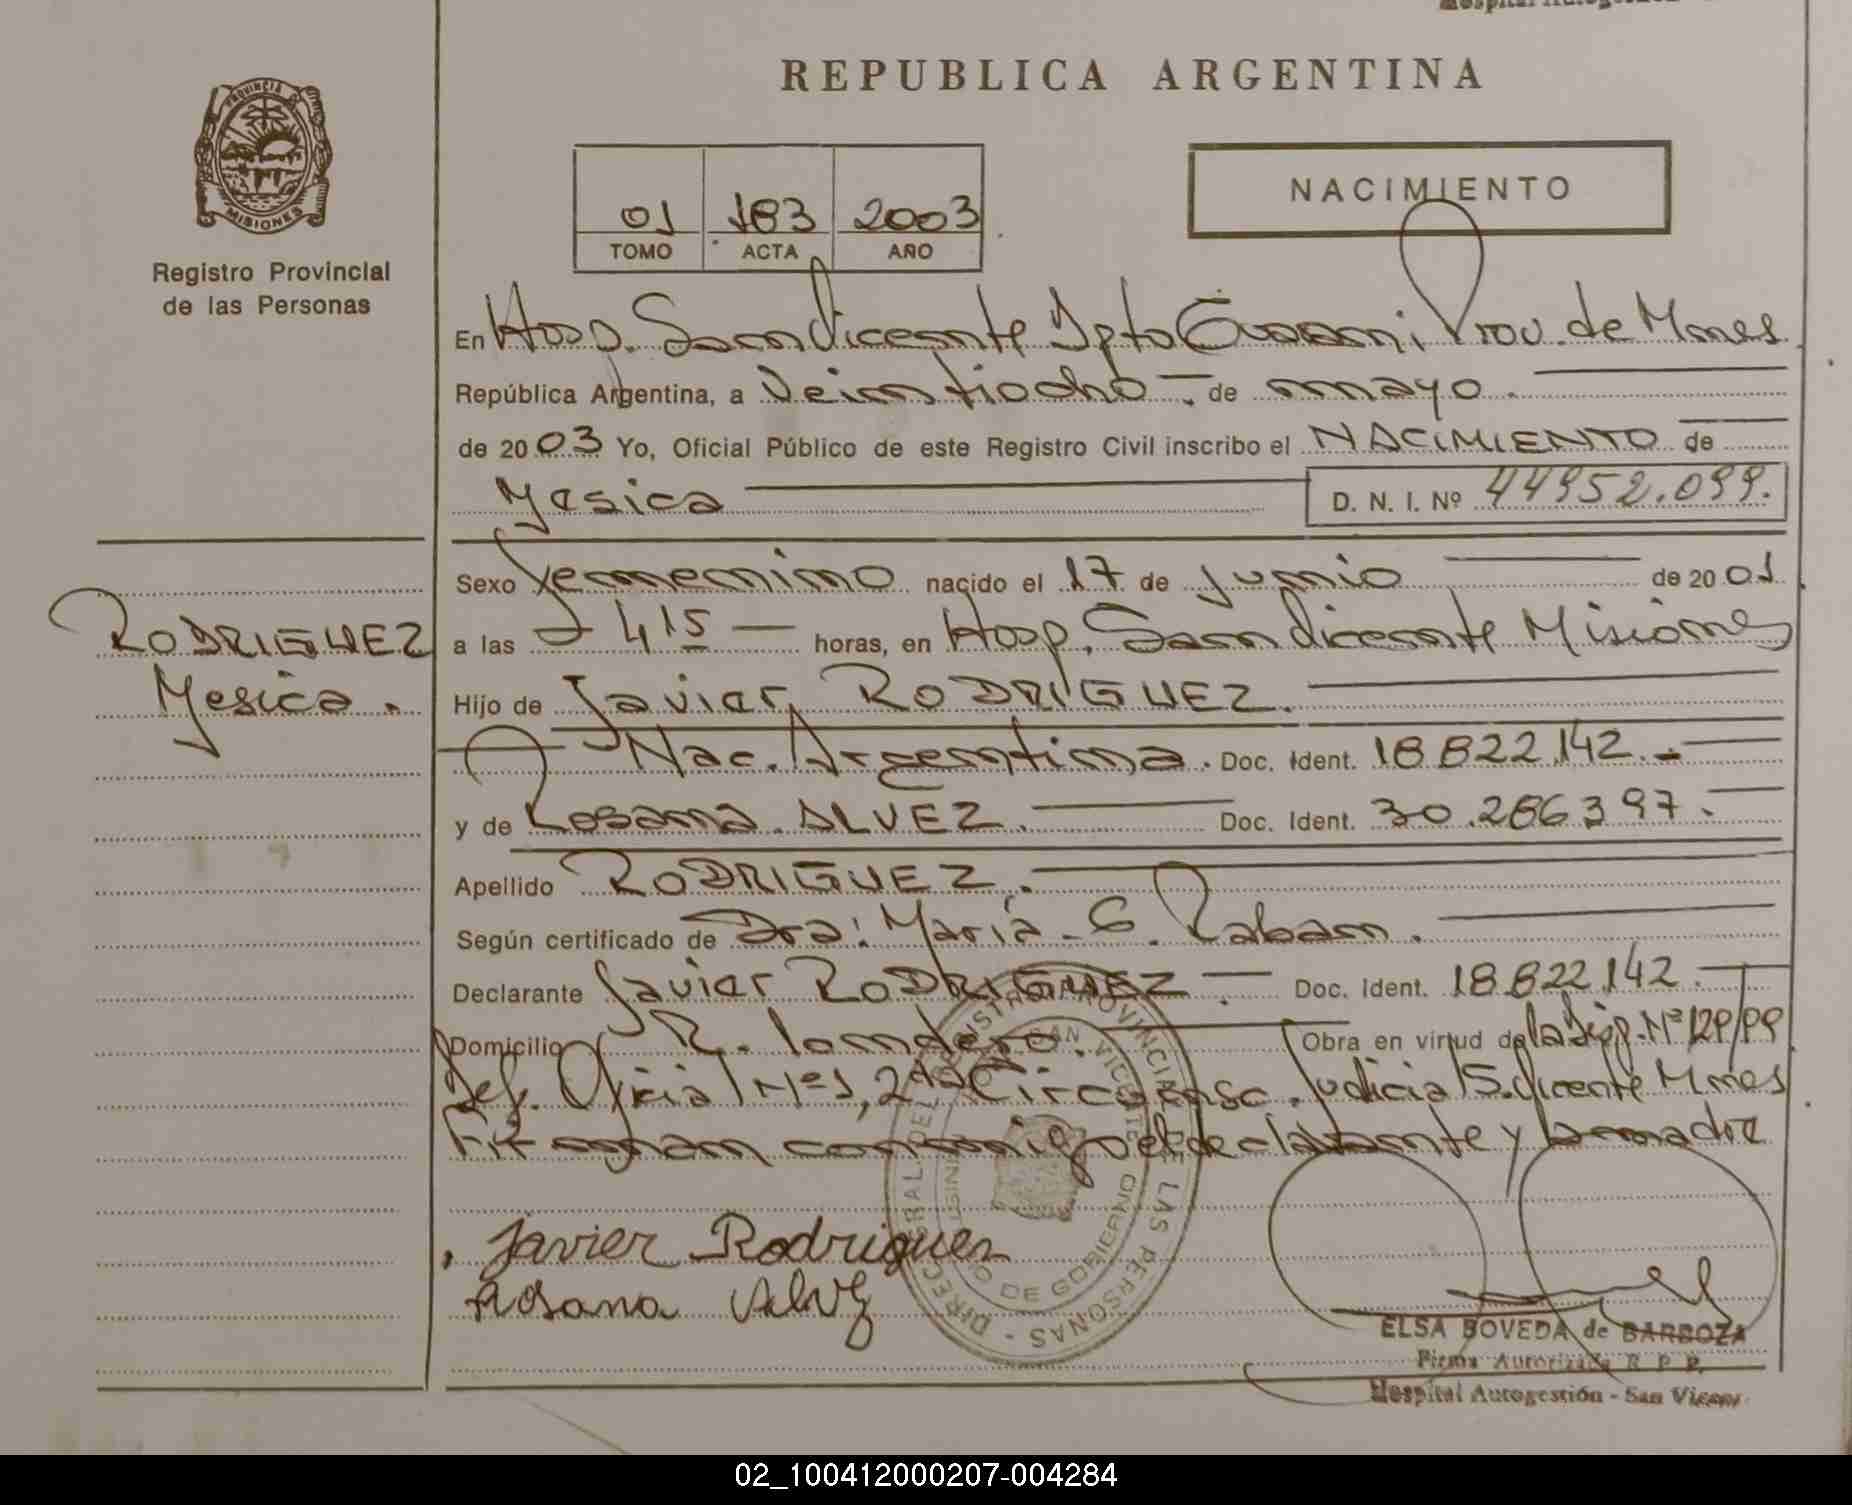 REPUBLICA ARGENTINA
PROVINCIA DE
MISIONES
Registro Provincial
de las Personas
01 183 2003
TOMO ACTA AÑO
NACIMIENTO
En Hosp. San Vicente Dpto Guarani Prov. de Mnes
República Argentina, a Veintiocho - de mayo.
de 2003 Yo, Oficial Público de este Registro Civil inscribo el NACIMIENTO de
Yesica D. N. I. Nº 44952.099.
Sexo Femenino nacido el 17 de Junio de 2001
RODRIGUEZ
Yesica.
a las 4 15 — horas, en Hosp. San Vicente Misiones
Hijo de Javier RODRIGUEZ.
Nac. Argentina. Doc. Ident. 18822142.-
y de Rosana ALVEZ. Doc. Ident. 30.286397.
Apellido RODRIGUEZ.
Según certificado de Dra: María G. Raban.
Declarante Javier RODRIGUEZ. Doc. Ident. 18822142.
Domicilio R. Obra en virtud de la Disp. Nº 129/99
Def. Oficial Nº1, 2da Circunsc. Judicial S. Vicente Mnes
Firman conmigo el declarante y la madre
Javier Rodriguez
Rosana Alvez
DIRECC GRAL. DEL REGISTRO PROVINCIAL DE LAS PERSONAS -
SAN VICENTE
DE GOBIERNO
ELSA BOVEDA de BARBOZA
Firma Autorizada R. P. P.
Hospital Autogestión - San Vicente
02_100412000207-004284